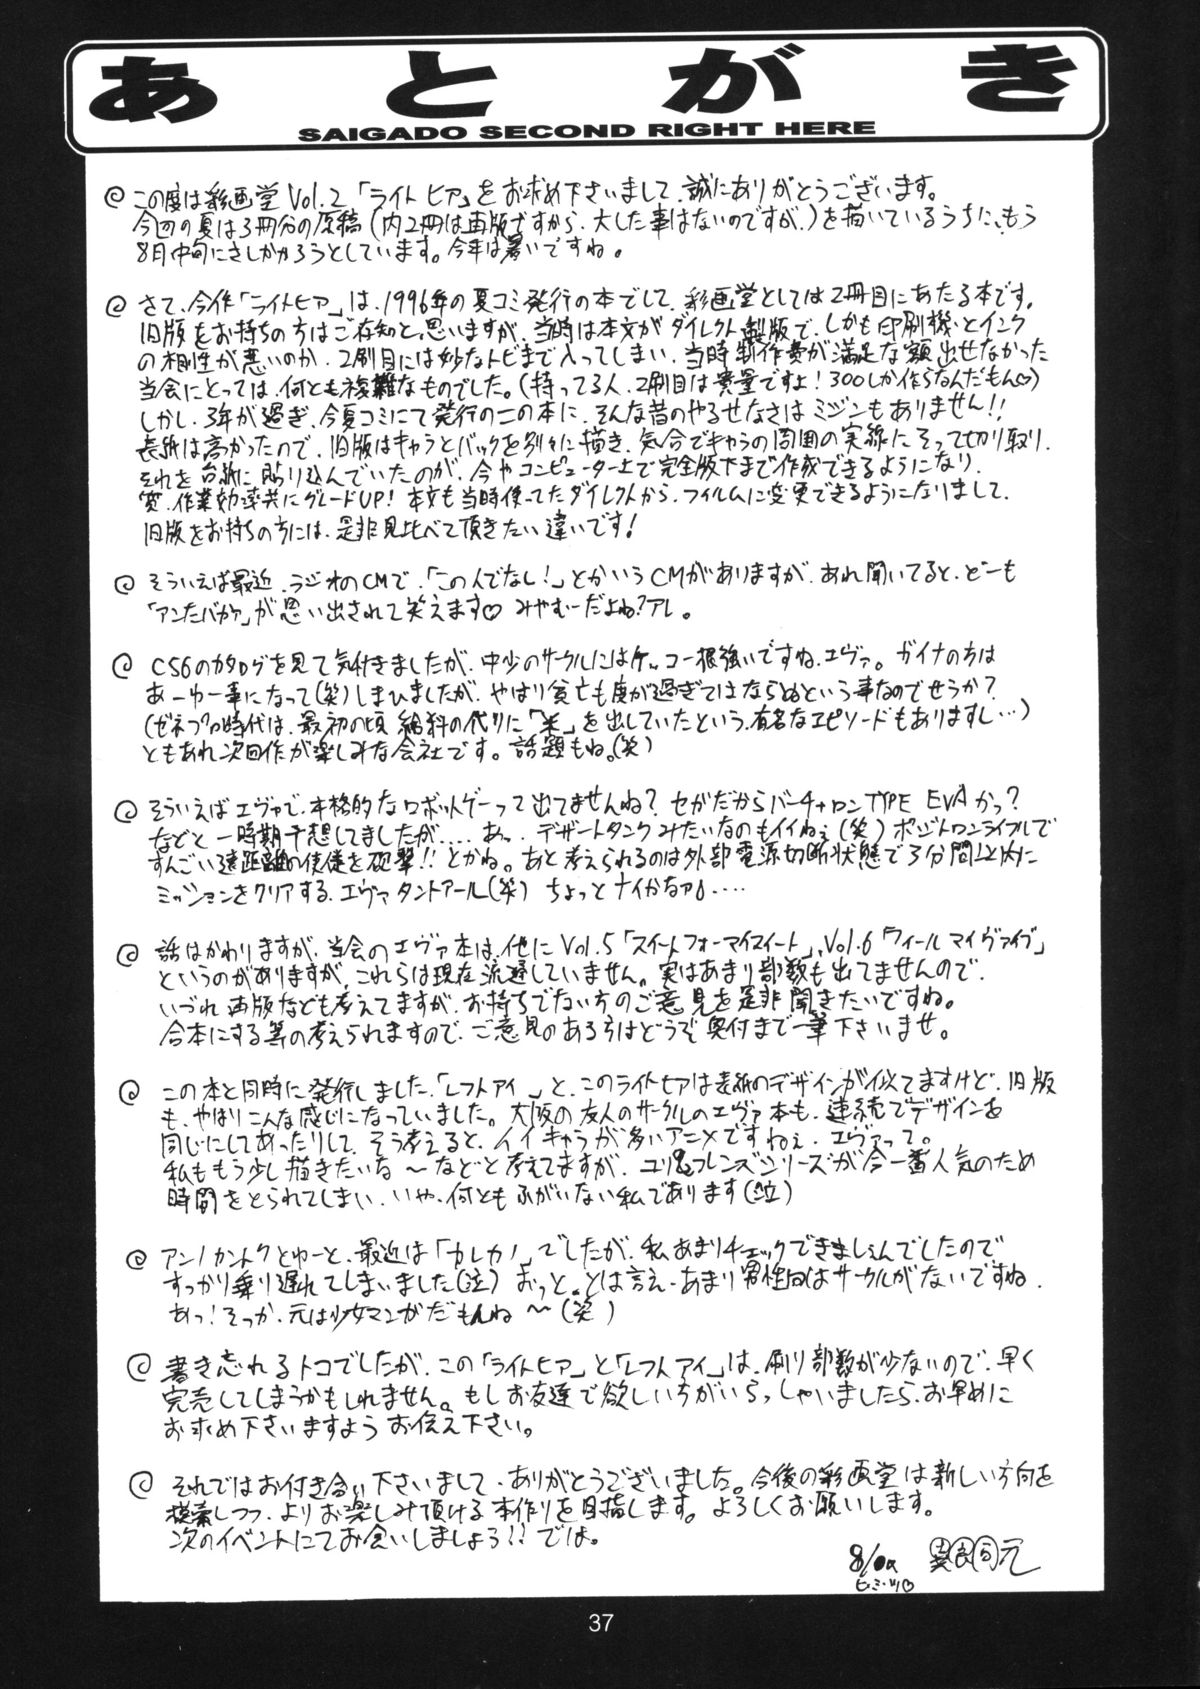 あとがき
SAIGADO SECOND RIGHT HERE
この度は彩画堂Vol.2「ライトヒア」をお求め下さいまして、誠にありがとうございます。
今回の夏は3冊分の原稿(内2冊は再版ですから、大した事はないのですが、)を描いているうちに、もう
8月中旬にさしかかろうとしています。今年は暑いですね。
さて、今作「ライトヒア」は、1996年の夏コミ発行の本でして、彩画堂としては2冊目にあたる本です。
旧版をお持ちの方はご存知と思いますが、当時は本文がダイレクト製版で、しかも印刷機とインク
の相性が悪いのか、2刷目には妙なトビまで入ってしまい、当時制作費が満足な額出せなかった
当会にとっては、何とも複雑なものでした。(持ってる人、2刷目は貴重ですよ!300しか作らなんだもん♡)
しかし、3年が過ぎ、今夏コミにて発行のこの本に、そんな昔のやるせなさはミジンもありません!!
表紙は高かったので、旧版はキャラとバックを別々に描き、気合でキャラの周囲の実線にそって切り取り、
それを台紙に貼り込んでいたのが、今やコンピューター上で完全版下まで作成できるようになり、
質、作業効率共にグレードUP!本文も当時使ってたダイレクトから、フィルムに変更できるようになりまして、
旧版をお持ちの方には、是非見比べて頂きたい違いです!
そういえば最近、ラジオのCMで、「この人でなし!」とかいうCMがありますが、あれ聞いてると、どーも
「アンたバカァ」が思い出されて笑えます♡ みやむーだよね?アレ。
C56のカタログを見て気付きましたが、中少のサークルにはケッコー根強いですね、エヴァ。ガイナの方は
あーゆー事になって(笑)しまひましたが、やはり貧亡も度が過ぎてはならぬという事なのでせうか?
(ゼネプロ時代は、最初の頃給料の代りに「米」を出していたという、有名なエピソードもありますし…)
ともあれ次回作が楽しみな会社です。話題もね。(笑)
そういえばエヴァで、本格的なロボットゲーって出てませんね?セガだからバーチャロンTYPE EVAかっ?
などと一時期予想してましたが.....あっ、デザートタンクみたいなのもイイねぇ(笑)ポジトロンライフルで
すんごい遠距離の使徒を砲撃!!とかね。あと考えられるのは外部電源切断状態で3分間以内に
ミッションをクリアする、エヴァタントアール(笑) ちょっとナイかなァ....
話はかわりますが、当会のエヴァ本は、他にVol.5「スイートフォーマイスイート」、Vol.6「フィールマイヴァイブ」
というのがありますが、これらは現在流通していません。実はあまり部数も出てませんので、
いづれ再版なども考えてますが、お持ちでない方のご意見を是非聞きたいですね。
合本にする等の考えられますので、ご意見のある方はどうぞ奥付まで一筆下さいませ。
この本と同時に発行しました、「レフトアイ」と、このライトヒアは表紙のデザインが似てますけど、旧版
も、やはりこんな感じになっていました。大阪の友人のサークルのエヴァ本も、連続でデザインを
同じにしてあったりして、そう考えると、イイキャラが多いアニメですねぇ、エヴァって。
私ももう少し描きたいな〜などと考えてますが、ユリ&フレンズシリーズが今一番人気のため
時間をとられてしまい、いや、何ともふがいない私であります(泣)
アンノカントクとゆーと、最近は「カレカノ」でしたが、私あまりチェックできましぇんでしたので
すっかり乗り遅れてしまいました(泣) おっと、とは言え、あまり男性向はサークルがないですね、
あっ!そっか、元は少女マンがだもんね〜(笑)
書き忘れるトコでしたが、この「ライトヒア」と「レフトアイ」は、刷り部数が少ないので、早く
完売してしまうかもしれません。もしお友達で欲しい方がいらっしゃいましたら、お早めに
お求め下さいますようお伝え下さい。
それではお付き合い下さいまして、ありがとうございました。今後の彩画堂は新しい方向を
模索しつつ、よりお楽しみ頂ける本作りを目指します。よろしくお願いします。
次のイベントにてお会いしましょう!!では。
37